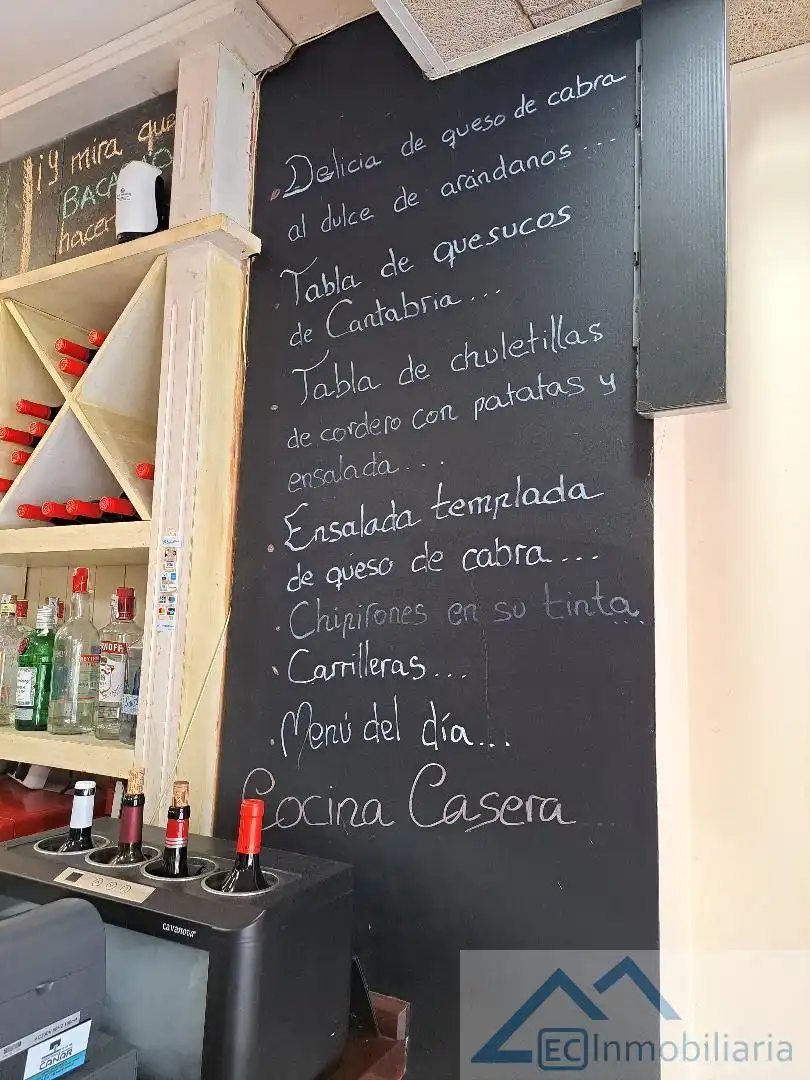 ¡¡y mira que
BACA
hacer
Delicia de queso de cabra
al dulce de arandanos...
Tabla de quesucos
de Cantabria...
Tabla de chuletillas
de cordero con patatas y
ensalada...
Ensalada templada
de queso de cabra....
Chipirones en su tinta
Carrilleras...
Menú del día...
Cocina Casera
cavanova
CANAR
EC Inmobiliaria